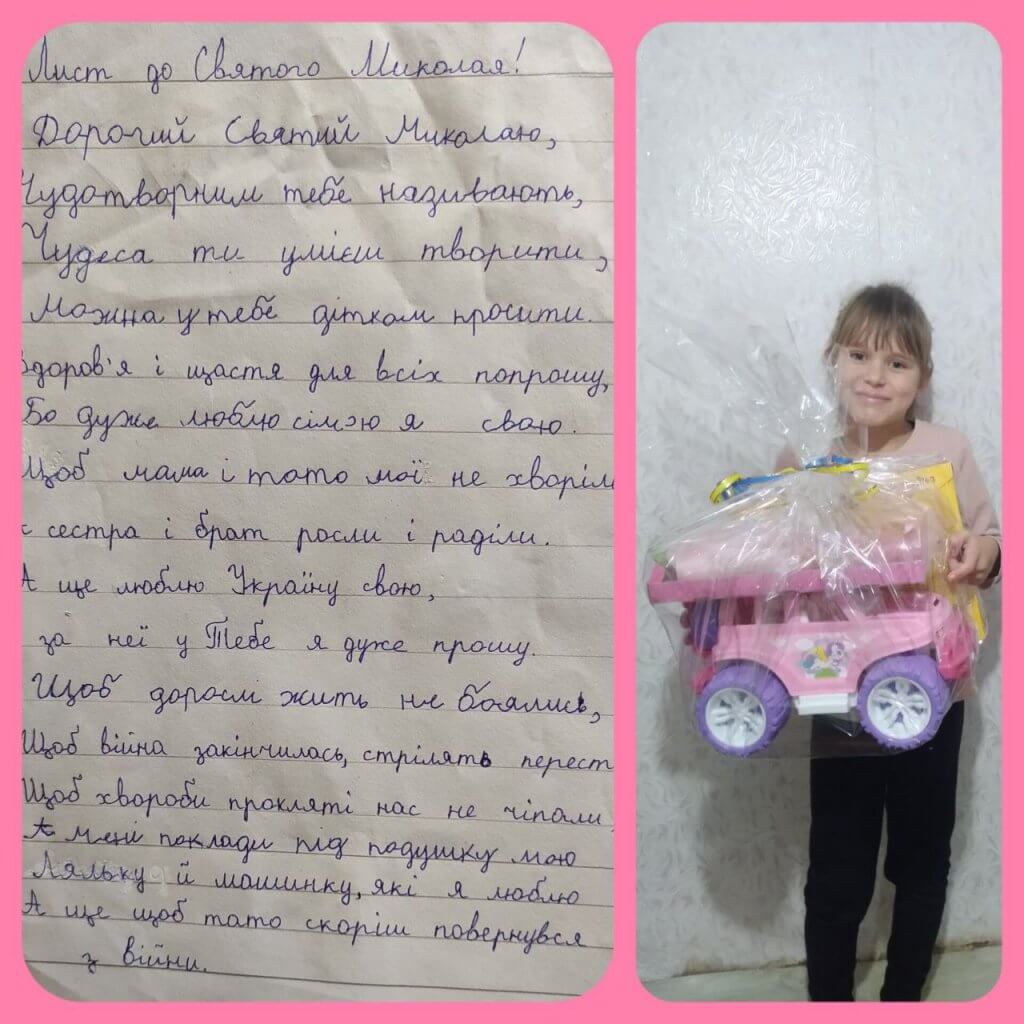 Лист до Святого Миколая!
Дорогий Святий Миколаю,
Чудотворним тебе називають,
Чудеса ти умієш творити,
Можна у тебе діткам просити.
Здоров'я і щастя для всіх попрошу,
Бо дуже люблю сім'ю я свою.
Щоб мама і тато мої не хворіли
сестра і брат росли і раділи.
А ще люблю Україну свою,
за неї у Тебе я дуже прошу.
Щоб дорослі жить не боялись,
Щоб війна закінчилась, стрілять перест
Щоб хвороби прокляті нас не чіпали,
А мені поклади під подушку мою
Ляльку й машинку, які я люблю
А ще щоб тато скоріш повернувся
з війни.